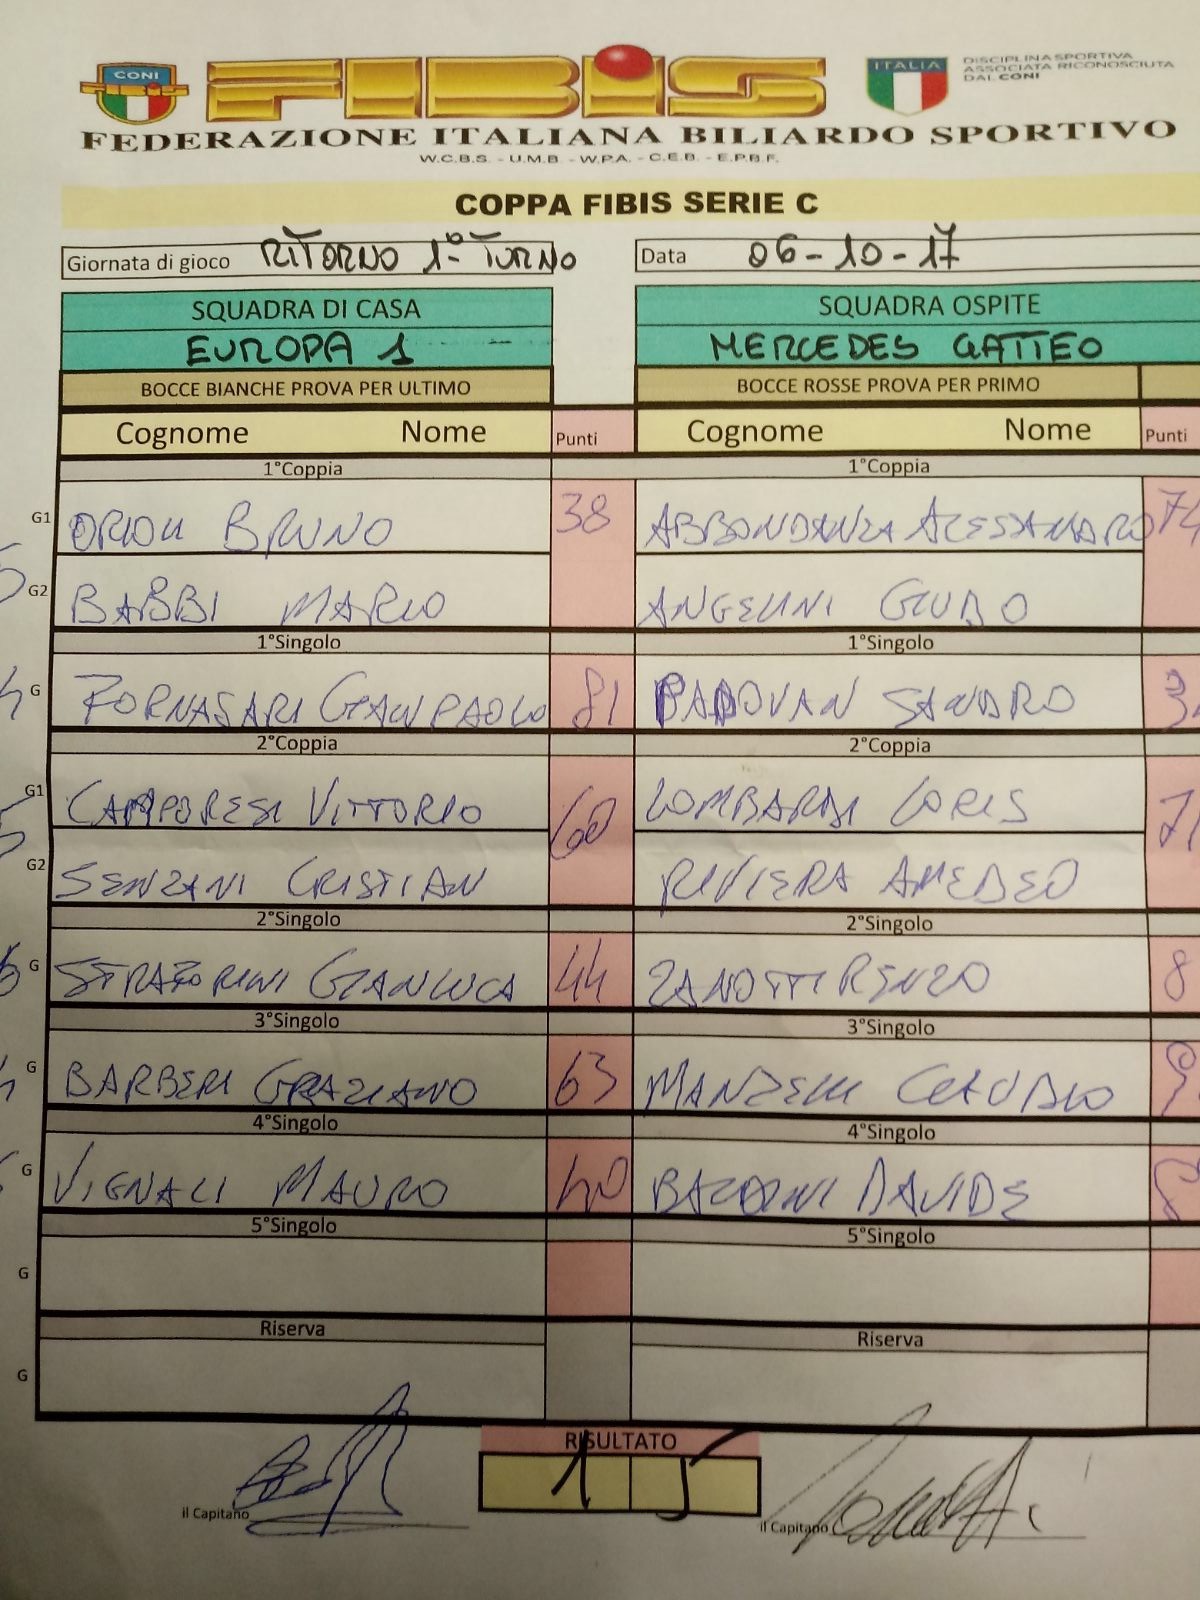 CONI
FIBIS
ITALIA
DISCIPLINA SPORTIVA
ASSOCIATA RICONOSCIUTA
DAL CONI
FEDERAZIONE ITALIANA BILIARDO SPORTIVO
W.C.B.S. - U.M.B - W.P.A. - C.E.B. - E.P.B.F.
COPPA FIBIS SERIE C
Giornata di gioco RITORNO 1° TURNO Data 06-10-17
SQUADRA DI CASA SQUADRA OSPITE
EUROPA 1 MERCEDES GATTEO
BOCCE BIANCHE PROVA PER ULTIMO BOCCE ROSSE PROVA PER PRIMO
Cognome Nome Punti Cognome Nome Punti
1°Coppia 1°Coppia
G1 BRUNO 38 ABBONDANZA ALESSANDRO
G2 BABBI MARIO ANGELINI GUIDO
1°Singolo 1°Singolo
G FORNASARI GIANPAOLO 81 PADOVAN SANDRO
2°Coppia 2°Coppia
G1 CAMPORESI VITTORIO 60 LOMBARDI LORIS
G2 SENZANI CRISTIAN RIVIERA AMEDEO
2°Singolo 2°Singolo
G GIANLUCA 44 ZANOTTI RENZO 8
3°Singolo 3°Singolo
G BARBERI GRAZIANO 63 MANZELLI CLAUDIO
4°Singolo 4°Singolo
G VIGNALI MAURO 40 DAVIDE
5°Singolo 5°Singolo
G
Riserva Riserva
G
RISULTATO
1 5
il Capitano il Capitano